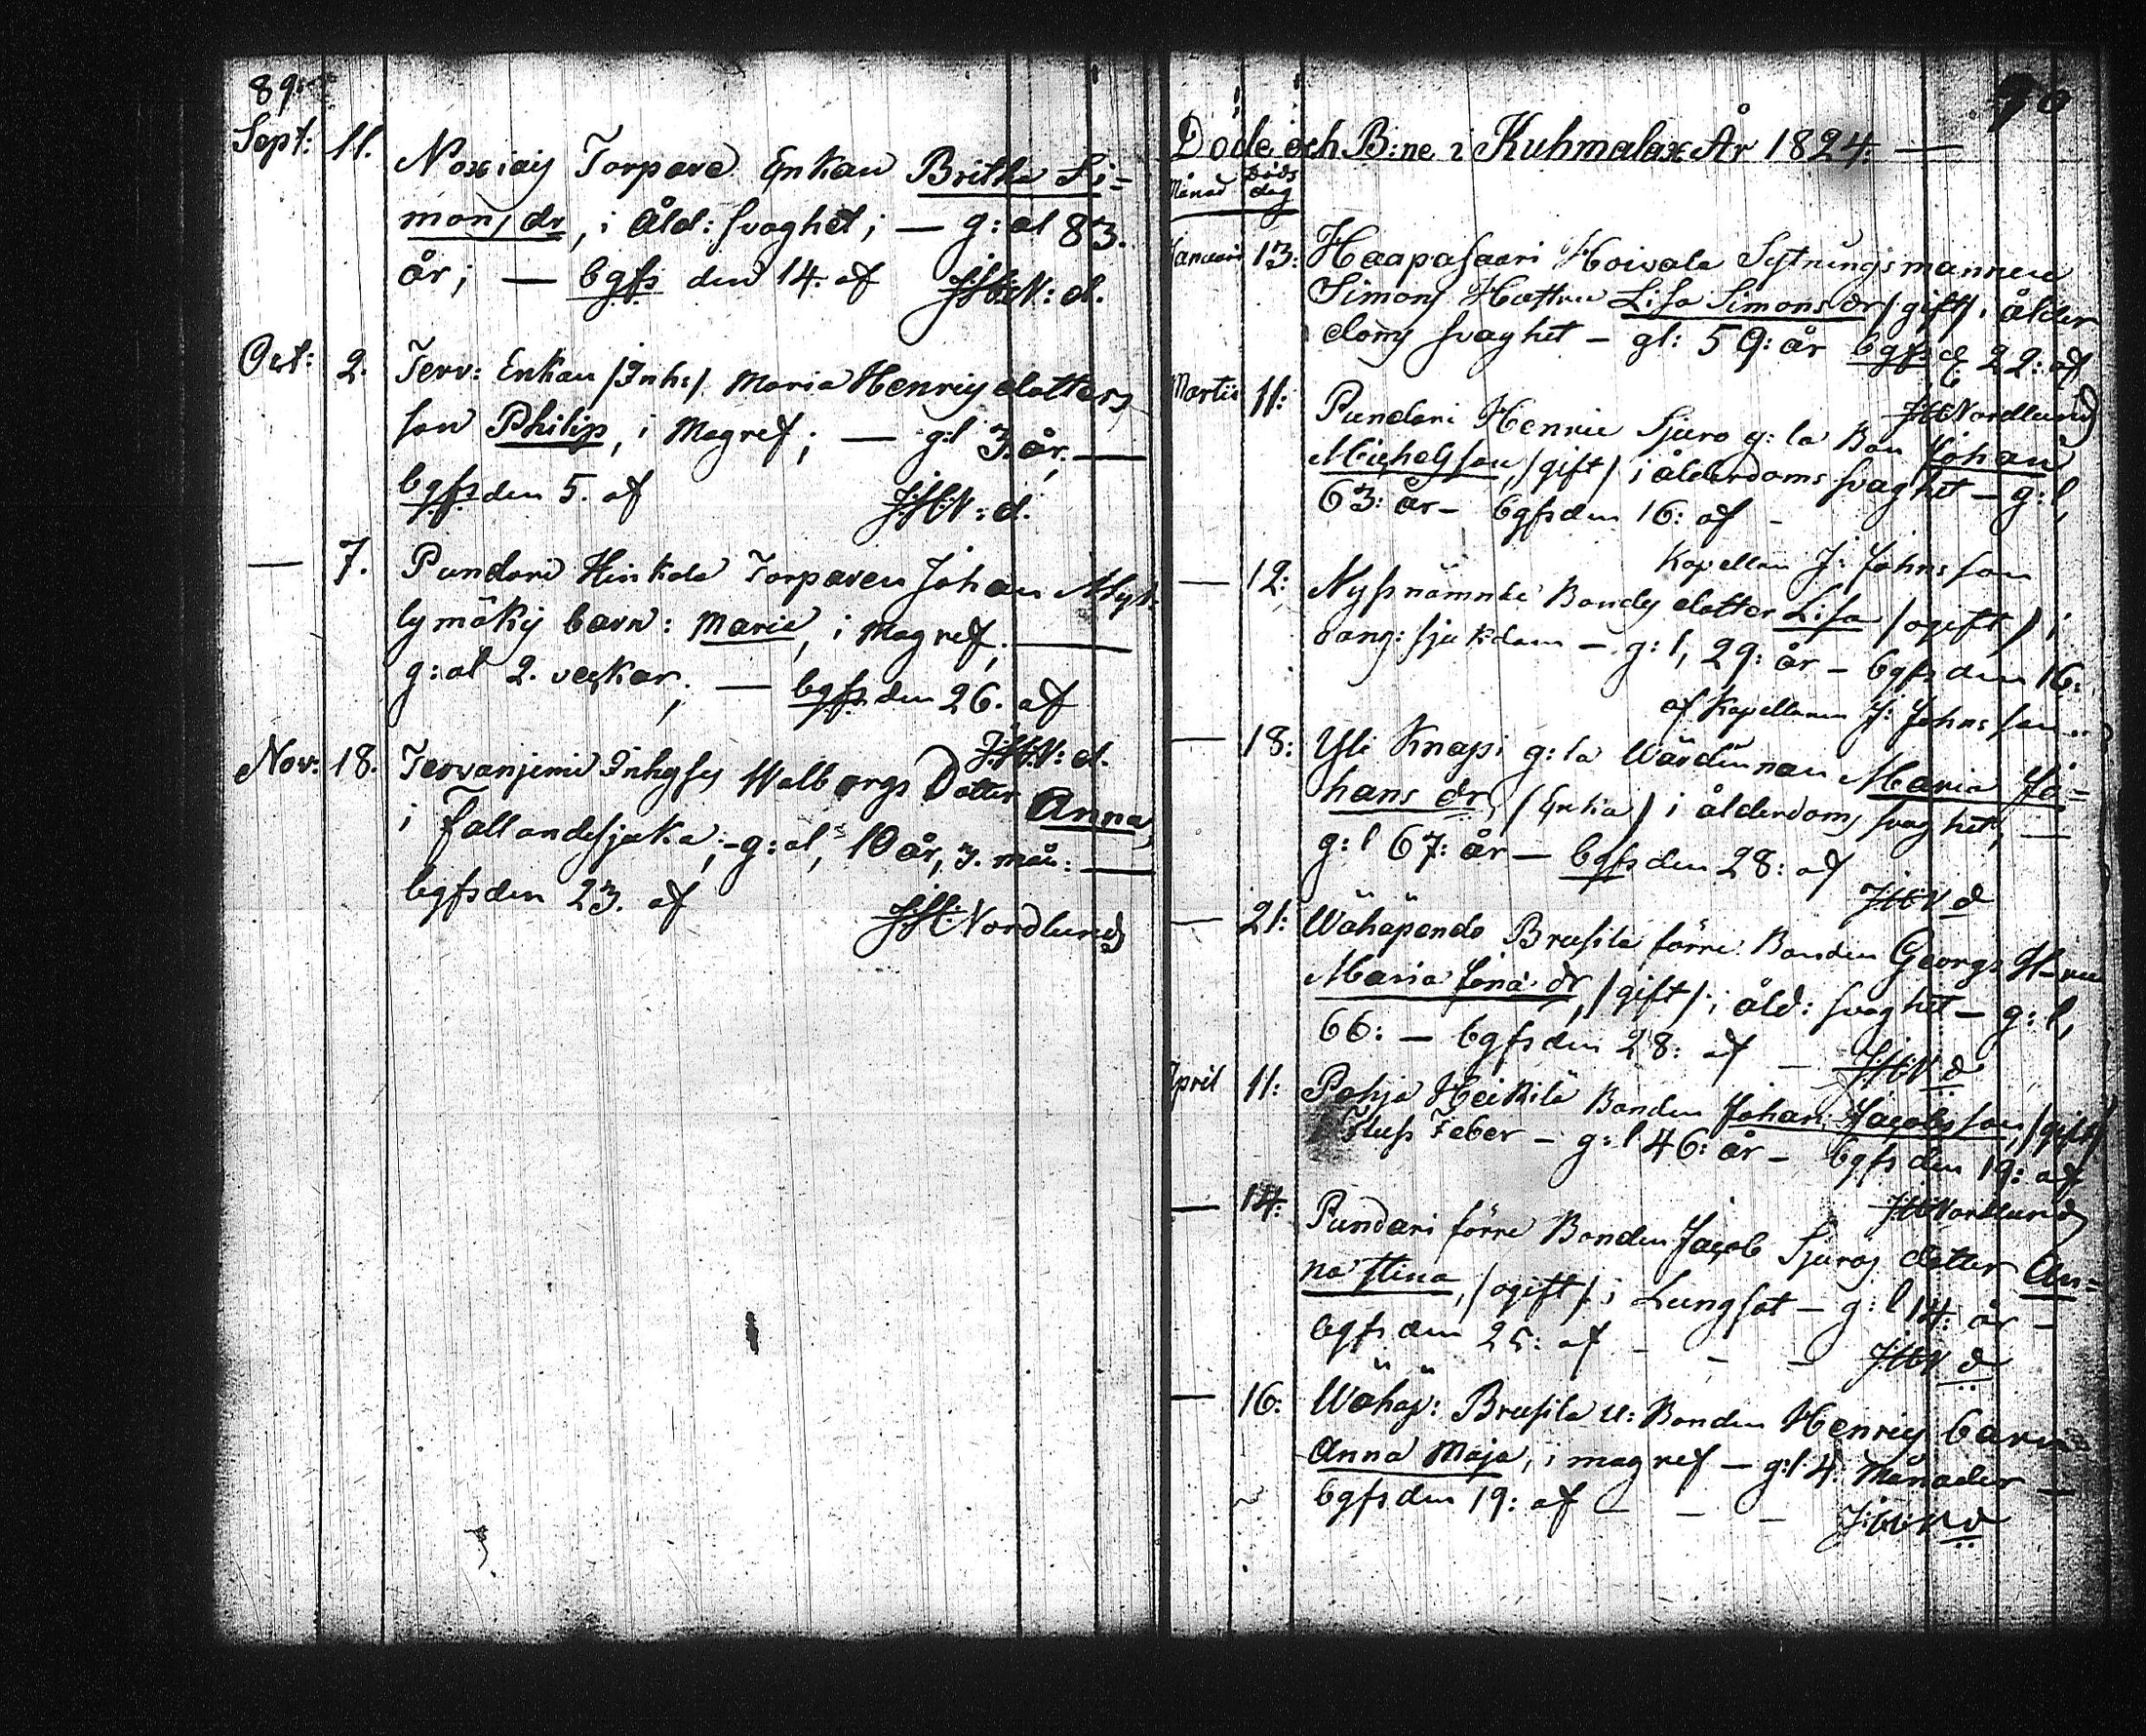 89.
Sept: 11. Noxiais Torpare Enkan Britha Si=
mons dr, i Åld: svaghet; — g: al 83.
år; — bgfs den 14. af J:H:N: d.
Oct: 2. Terv: Enkan /Inh:/ Maria Henrics dotters
son Philip, i Magref; — g:l 3. år, —
bgfs den 5. af J:H:N: d.
— 7. Pundari Hinkola Torparen Johan
lymäkis barn: Maria, i magref; —
g: al 2. veckor; — bgfs den 26. af
J:H:N: d.
Nov: 18. Tervanjemi Inhyses Walborgs Dotter Anna,
i Fallandesjuka; - g: al, 10 år, 3. mån: —
bgfs den 23. af J:H:Nordlund
90
Döde och B:ne i Kuhmalax År 1824. —
Månad Döds
dag
Januari 13: Haapasaari Hoivala Sytningsmannen
Simons Hustru Lisa Simons dr /gift/ i ålder
doms svaghet - gl: 59: år bgfs d 22: af
J:H:Nordlund
Martii 11: Pundari Henric Sjuro g: la Bon Johan
Michelsson, /gift/ i ålderdoms svaghet - g: l,
63: år - bgfs den 16: af -
Kapellan J: Johnsson
— 12: Nyssnämnde Bondes dotter Lisa /ogift/ i
bång: sjukdom - g: l, 29: år - bgfs den 16:
af Kapellanen J: Johnsson
— 18: Yli Knapi g: la Wärdinnan Maria Jo=
hans dr, (Enka) i ålderdoms svaghet, —
g: l 67: år — bgfs den 28: af
J:H:N d
— 21: Wähäpendo Brusila förre Bonden Georgs H-ru
Maria dr, /gift/ i åld: svaghet - g: l,
66: — bgfs den 28: af — J:H:N d
April 11: Pohja Heikilä Bonden Johan Jacobsson, /gift/
Feber - g: l 46: år - bgfs den 19: af
J:H:Nordlund
— 14: Pundari förre Bonden Jacob Sjuros dotter An=
na Stina, /ogift/ i Lungsot - g: l 14: år -
bgfs den 25: af - - - J:H:N d
— 16: Wähäp: Brusila u: Bonden Henrics barn
Anna Maja, i magref — g:l 4: Månader —
bgfs den 19: af - - - J:H:N d